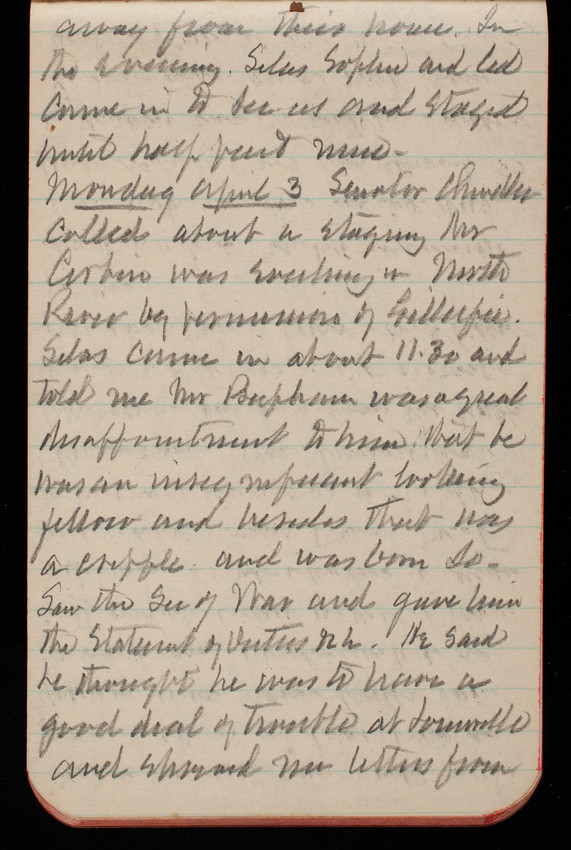 away from their house. In
the evening. Silas Sophie and Led
came in to see us and staged
until half past nine -
Monday April 3 Senator Chandler
called about a staging Mr
was working in North
River by permission of Gillespie.
Silas came in about 11.30 and
told me Mr was a great
disappointment to him that he
was an insignificant looking
fellow and besides that was
a cripple and was born so -
Saw the Sec of War and gave him
the Statement of duties &c. He said
he thought he was to have a
good deal of trouble at
and showed me letters from